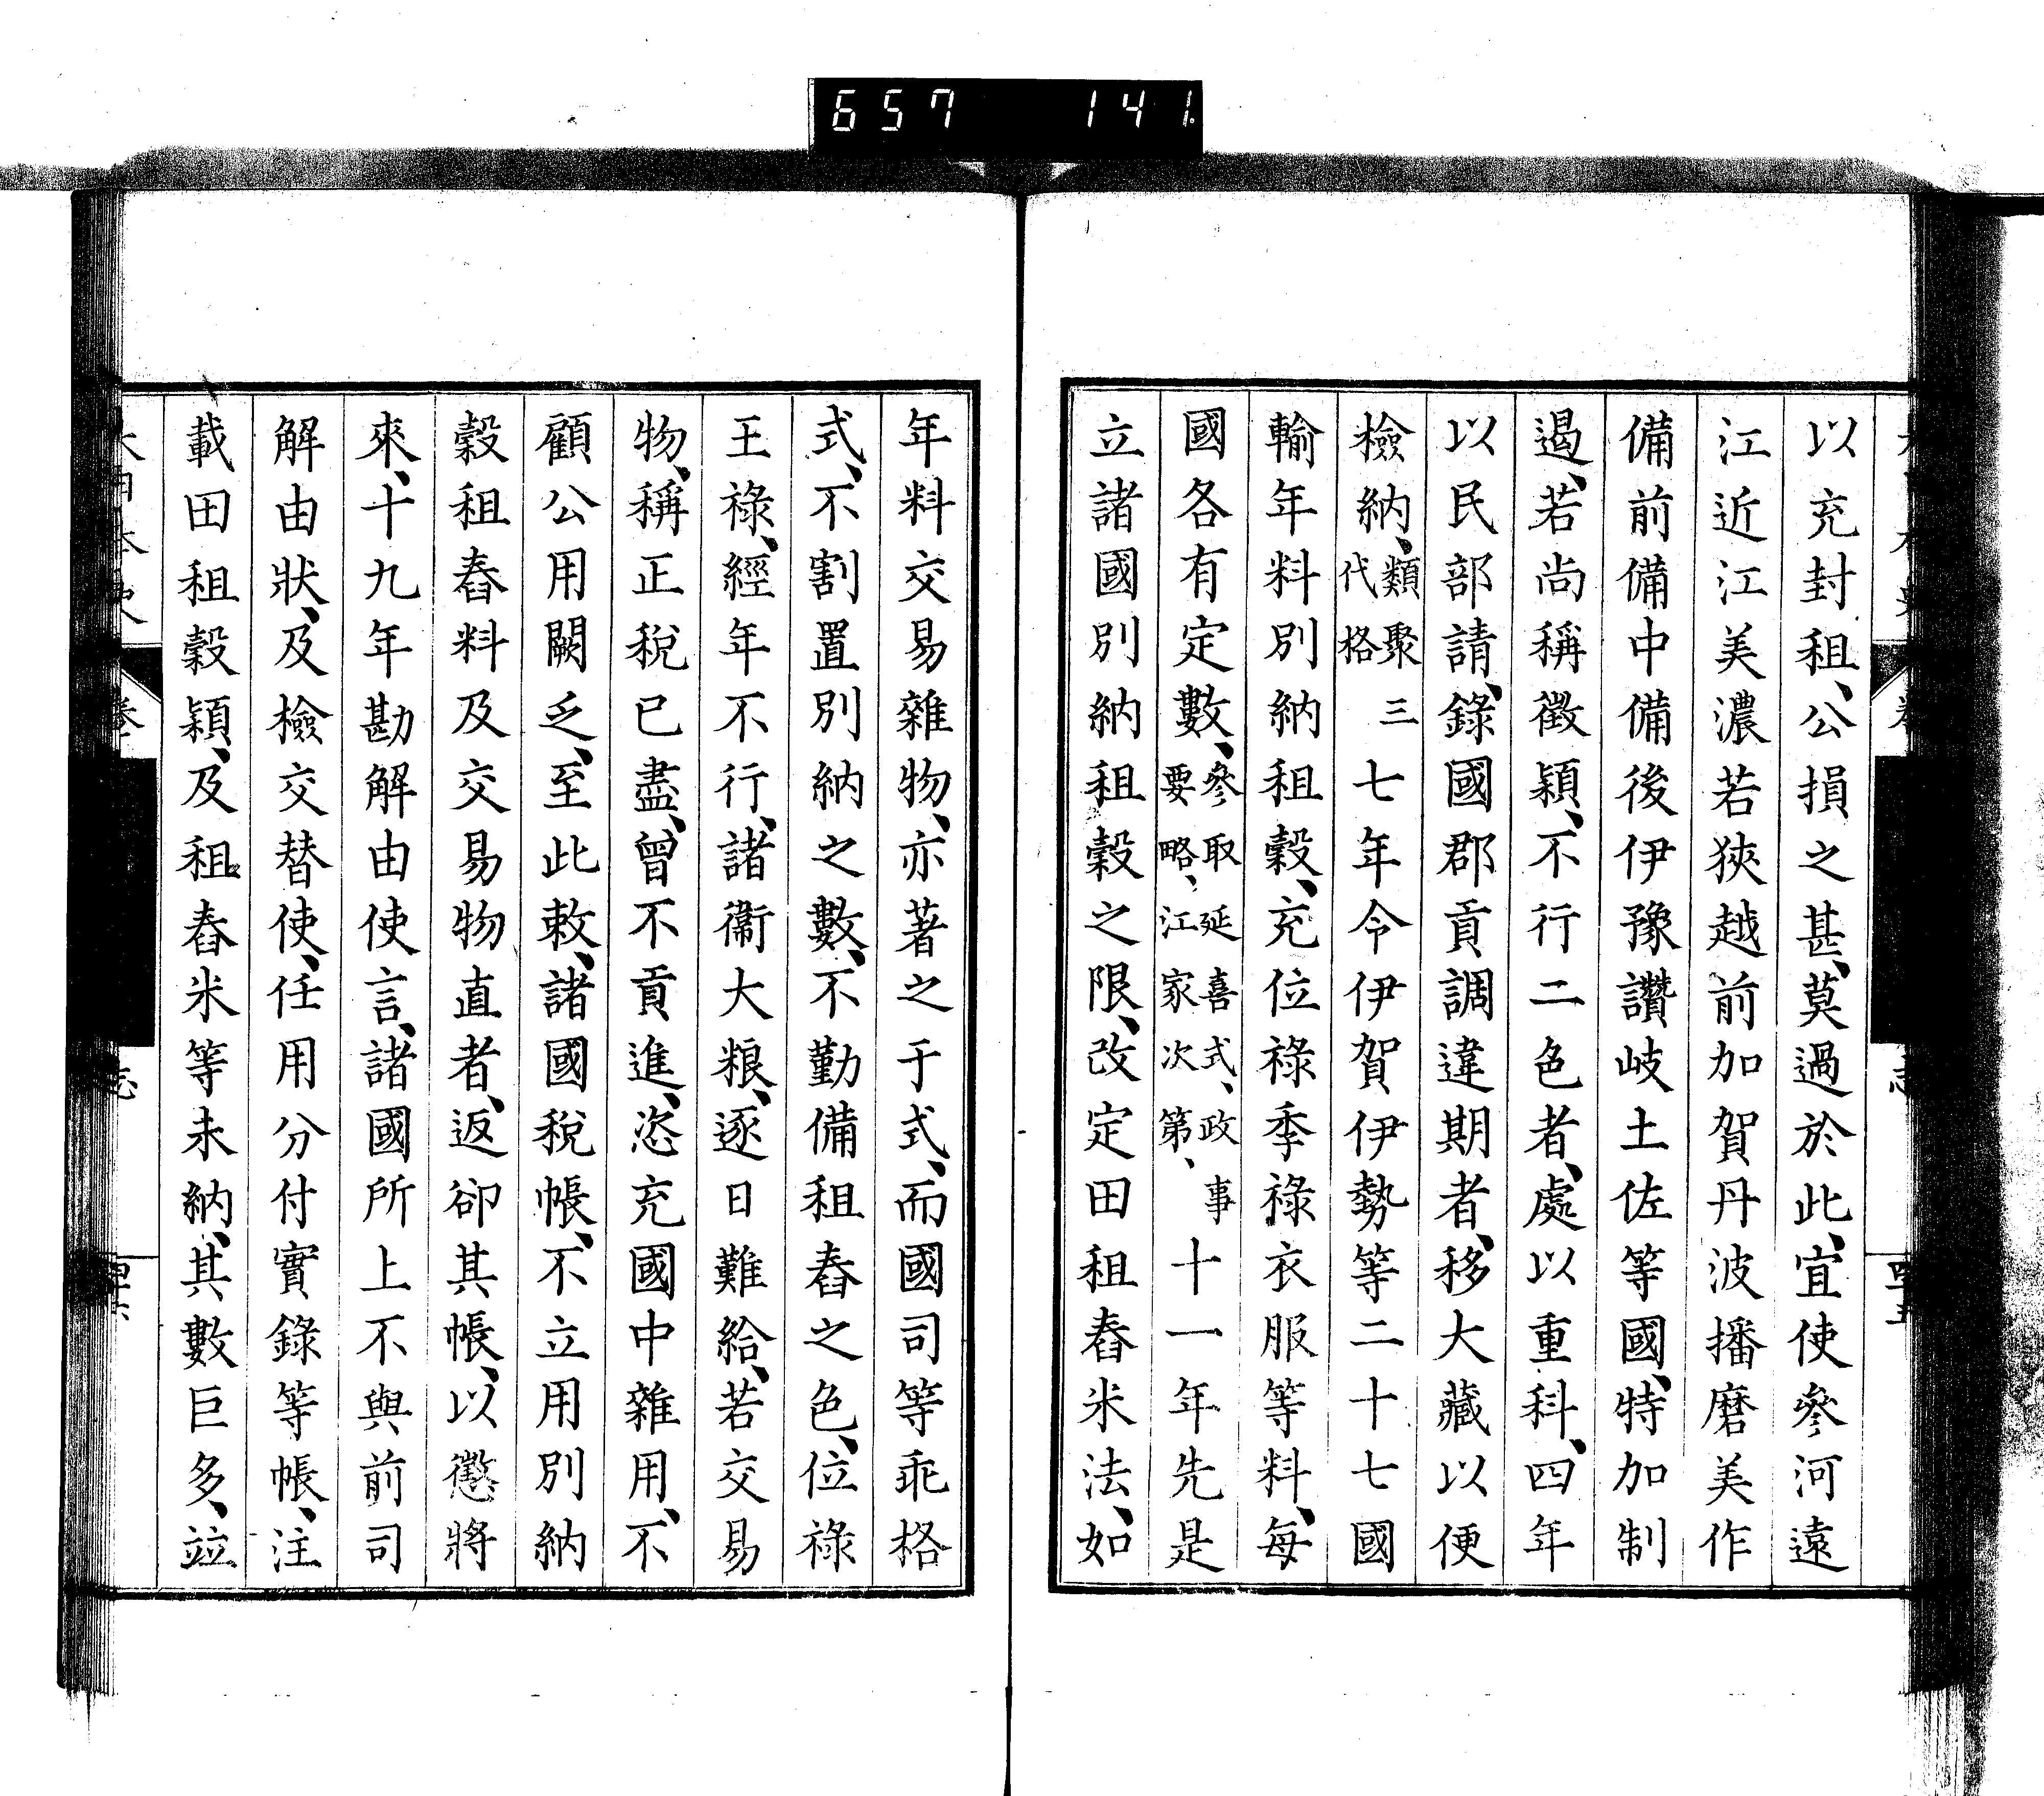 657 141
以充封租、公損之甚、莫過於此、宜使參河遠
江近江美濃若狹越前加賀丹波播磨美作
備前備中備後伊豫讚岐土佐等國、特加制
遏、若尚稱徵穎、不行二色者、處以重科、四年
以民部請、錄國郡貢調違期者、移大藏以便
檢納、類聚三代格七年令伊賀伊勢等二十七國
輸年料別納租穀、充位祿季祿衣服等料、每
國各有定數、參取延喜式、政事要略、江家次第、十一年先是
立諸國別納租穀之限、改定田租舂米法、如
年料交易雜物、亦著之于式、而國司等乖格
式、不割置別納之數、不勤備租舂之色、位祿
王祿、經年不行、諸衞大粮、逐日難給、若交易
物、稱正稅已盡、曾不貢進、恣充國中雜用、不
顧公用闕乏、至此敕、諸國稅帳、不立用別納
穀租舂料及交易物直者、返卻其帳、以懲將
來、十九年勘解由使言、諸國所上不與前司
解由狀、及檢交替使、任用分付實錄等帳、注
載田租穀穎、及租舂米等未納、其數巨多、竝